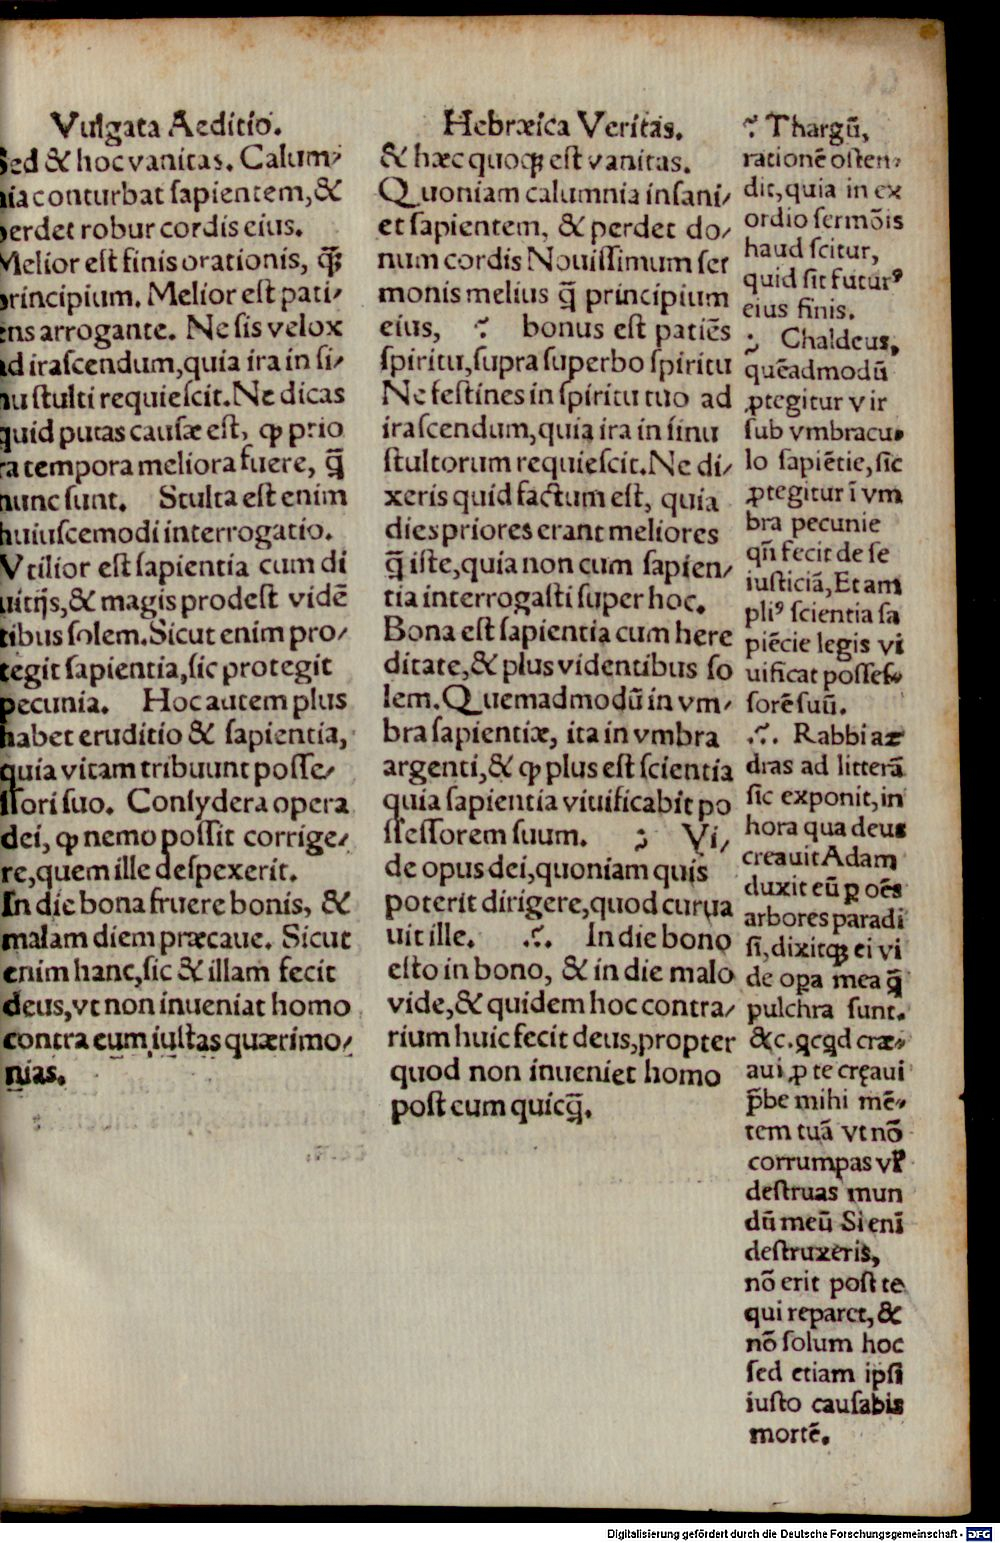 Vulgata Aeditio.
Sed & hoc vanitas. Calum-
nia conturbat sapientem,&
perdet robur cordis eius.
Melior est finis orationis, q̃
principium. Melior est pati-
ens arrogante. Ne sis velox
ad irascendum,quia ira in si-
nu stulti requiescit.Ne dicas
quid putas causæ est, ꝙ prio
ra tempora meliora fuere, q̃
nunc sunt. Stulta est enim
huiuscemodi interrogatio.
Vtilior est sapientia cum di
uitijs,& magis prodest vidē
tibus solem.Sicut enim pro-
tegit sapientia,sic protegit
pecunia. Hoc autem plus
habet eruditio & sapientia,
quia vitam tribuunt posse-
ssori suo. Consydera opera
dei, ꝙ nemo possit corrige-
re,quem ille despexerit.
In die bona fruere bonis, &
malam diem præcaue. Sicut
enim hanc,sic & illam fecit
deus,vt non inueniat homo
contra eum iustas quærimo-
nias.
Hebræica Veritas.
& hæc quoqꝫ est vanitas.
Quoniam calumnia insani-
et sapientem, & perdet do-
num cordis Nouissimum ser
monis melius q̃ principium
eius, ⁖ bonus est patiēs
spiritu,supra superbo spiritu
Ne festines in spiritu tuo ad
irascendum,quia ira in sinu
stultorum requiescit.Ne di-
xeris quid factum est, quia
dies priores erant meliores
q̃ iste,quia non cum sapien-
tia interrogasti super hoc.
Bona est sapientia cum here
ditate,& plus videntibus so
lem.Quemadmodū in vm-
bra sapientiæ, ita in vmbra
argenti,& ꝙ plus est scientia
quia sapientia viuificabit po
ssessorem suum. ⁏ Vi-
de opus dei,quoniam quis
poterit dirigere,quod curua
uit ille. .⁖. In die bono
esto in bono, & in die malo
vide,& quidem hoc contra-
rium huic fecit deus,propter
quod non inueniet homo
post eum quicq̃.
⁖ Thargū,
rationē osten-
dit,quia in ex
ordio sermōis
haud scitur,
quid sit futurꝰ
eius finis.
⁏ Chaldeus,
quēadmodū
ꝓtegitur vir
sub vmbracu-
lo sapiētie,sic
ꝓtegitur ī vm
bra pecunie
qñ fecit de se
iusticiā,Et am
pliꝰ scientia sa
piēcie legis vi
uificat posses-
sorē suū.
.⁖. Rabbi az
dras ad litterā
sic exponit,in
hora qua deus
creauit Adam
duxit eū ꝑ oēs
arbores paradi
si,dixitqꝫ ei vi
de oꝑa mea q̃
pulchra sunt.
&c.qcqd cræ-
aui ꝓ te cręaui
p̄be mihi mē-
tem tuā vt nō
corrumpas vł
destruas mun
dū meū Si enī
destruxeris,
nō erit post te
qui reparet,&
nō solum hoc
sed etiam ipsi
iusto causabis
mortē.
Digitalisierung gefördert durch die Deutsche Forschungsgemeinschaft - DFG